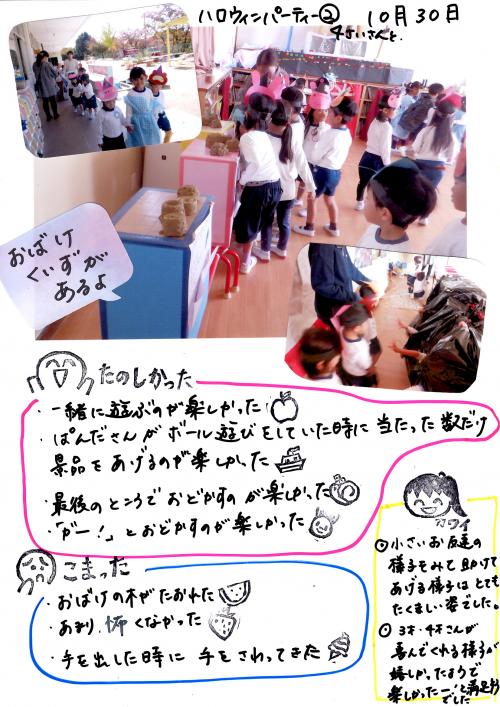 ハロウィンパーティー② 10月30日
4才いさんと.
おばけ
くいずが
あるよ
たのしかった
・一緒に遊ぶのが楽しかった
・ぱんださんがボール遊びをしていた時に当たった数だけ
景品をあげるのが楽しかった
・最後のところでおどかすのが楽しかった
・「がー!」とおどかすのが楽しかった
こまった
・おばけの木がたおれた
・あまり、怖くなかった
・手を出した時に手をさわってきた
カワイ
小さいお友達の
様子をみて助けて
あげる様子はとても
たくましい姿でした。
3才・4才さんが
喜んでくれる様子が
嬉しかったようで
楽しかったー!と満足そう
でした